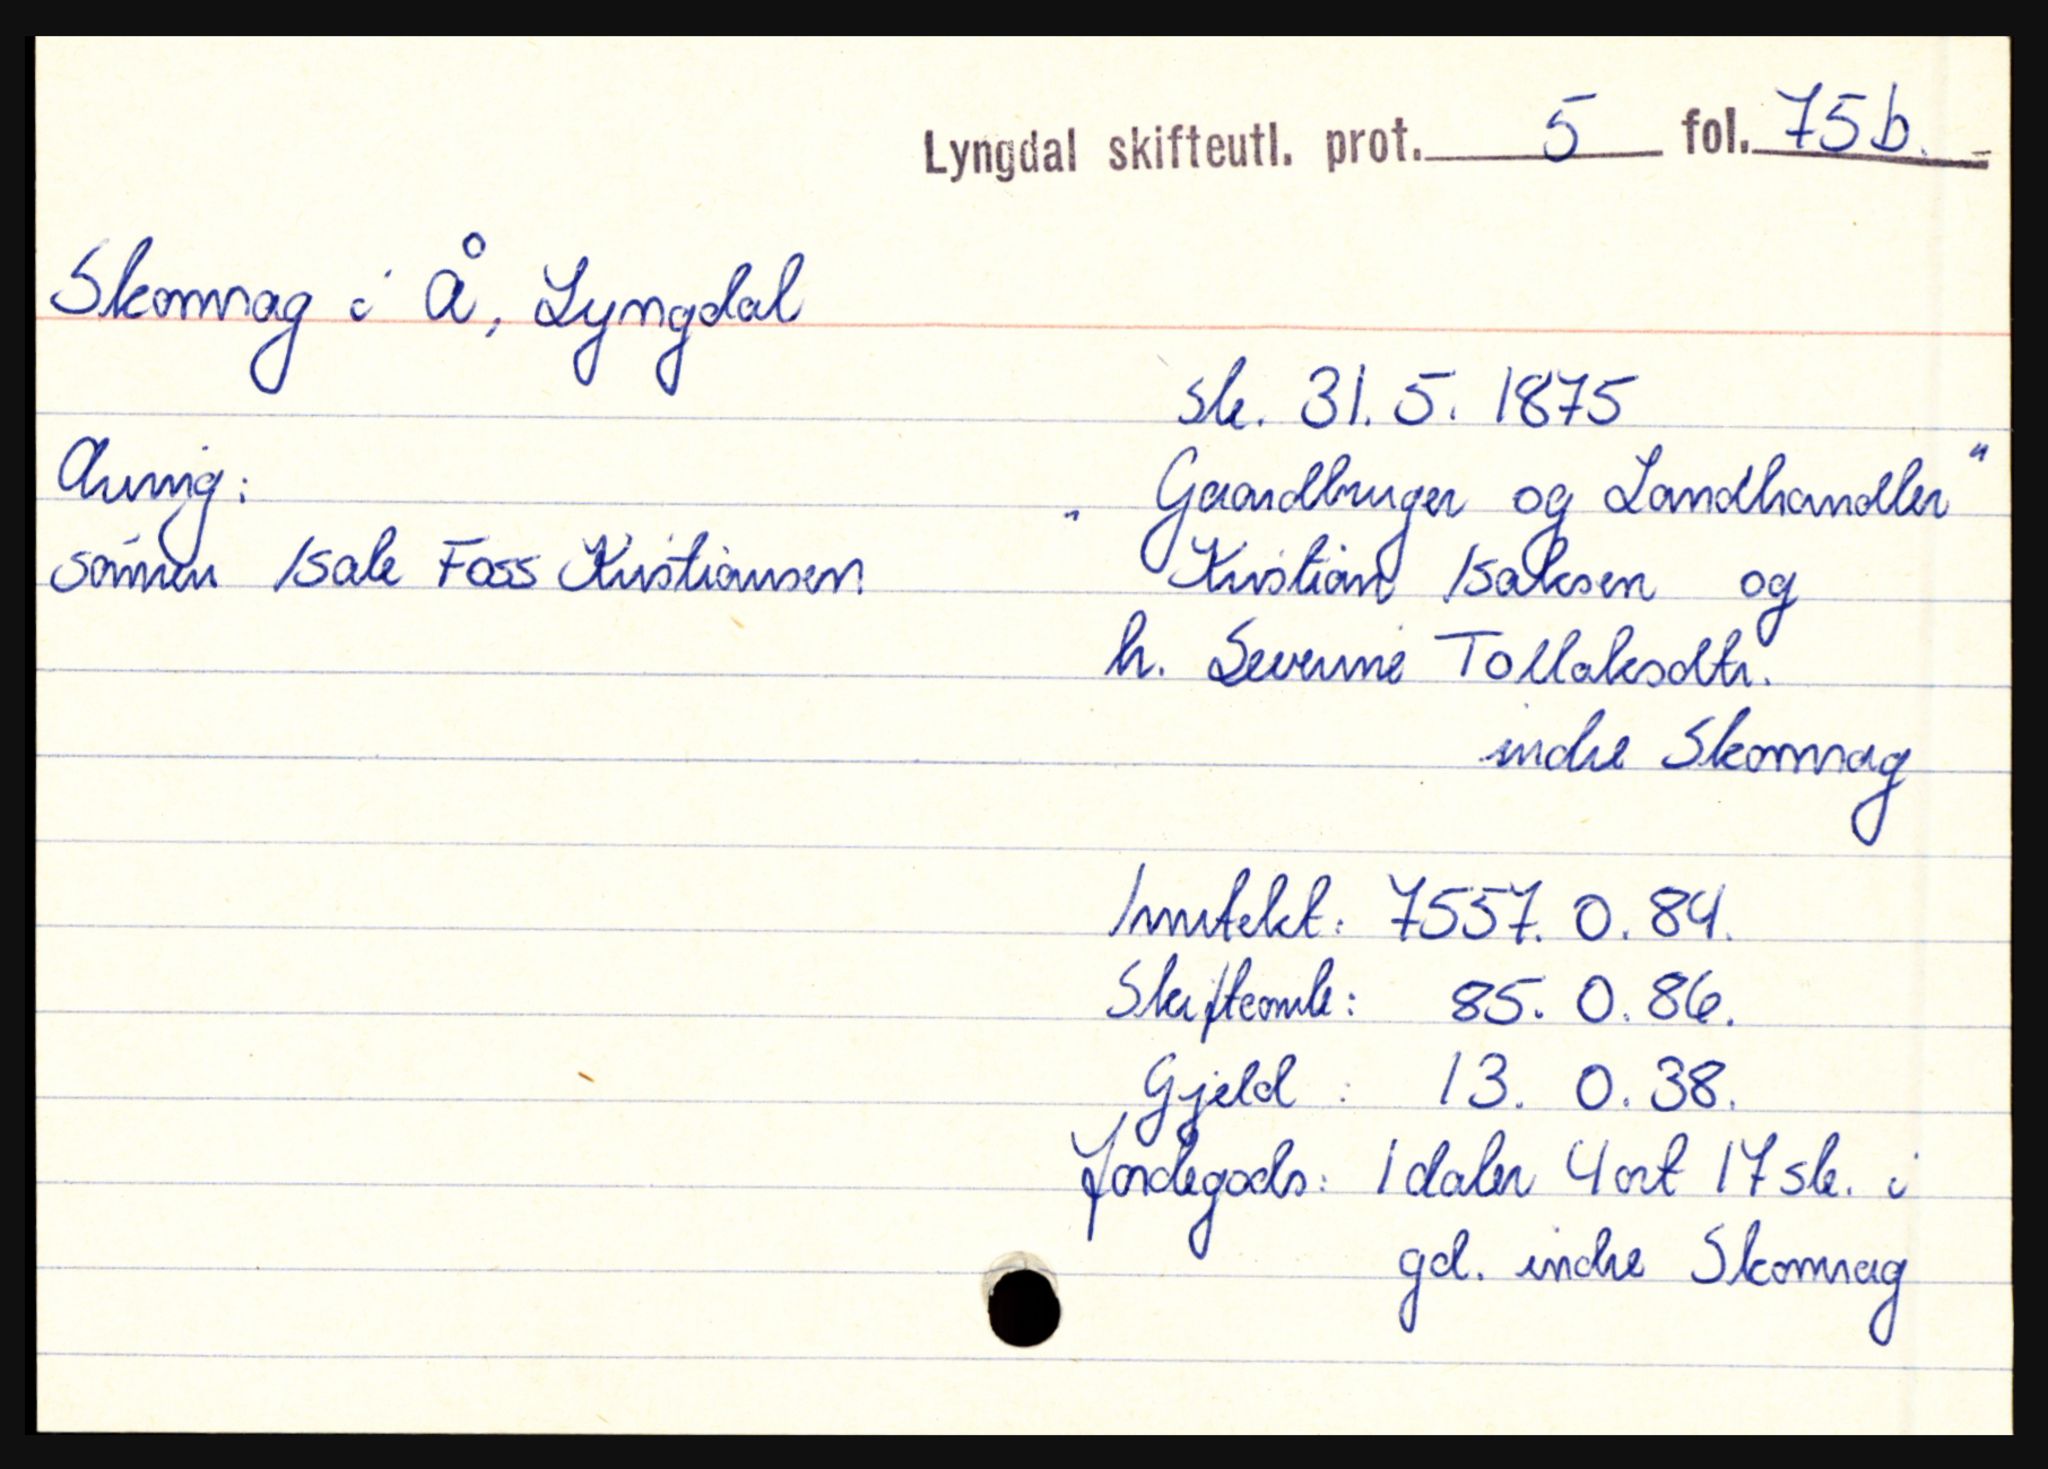 Lyngdal skifteutl. prot. 5 fol. 75b.
Skomrag i Å, Lyngdal
sk. 31.5.1875
Arving:
" Gaardbruger og Landhandler "
sönnen Isak Foss Kristiansen
Kristian Isaksen og
h. Severine Tollaksdtr.
indre Skomrag
Inntekt: 7557. 0. 84.
Skifteomk: 85. 0. 86.
Gjeld : 13. 0. 38.
Jordegods: 1 daler 4 ort 17 sk. i
gd. indre Skomrag